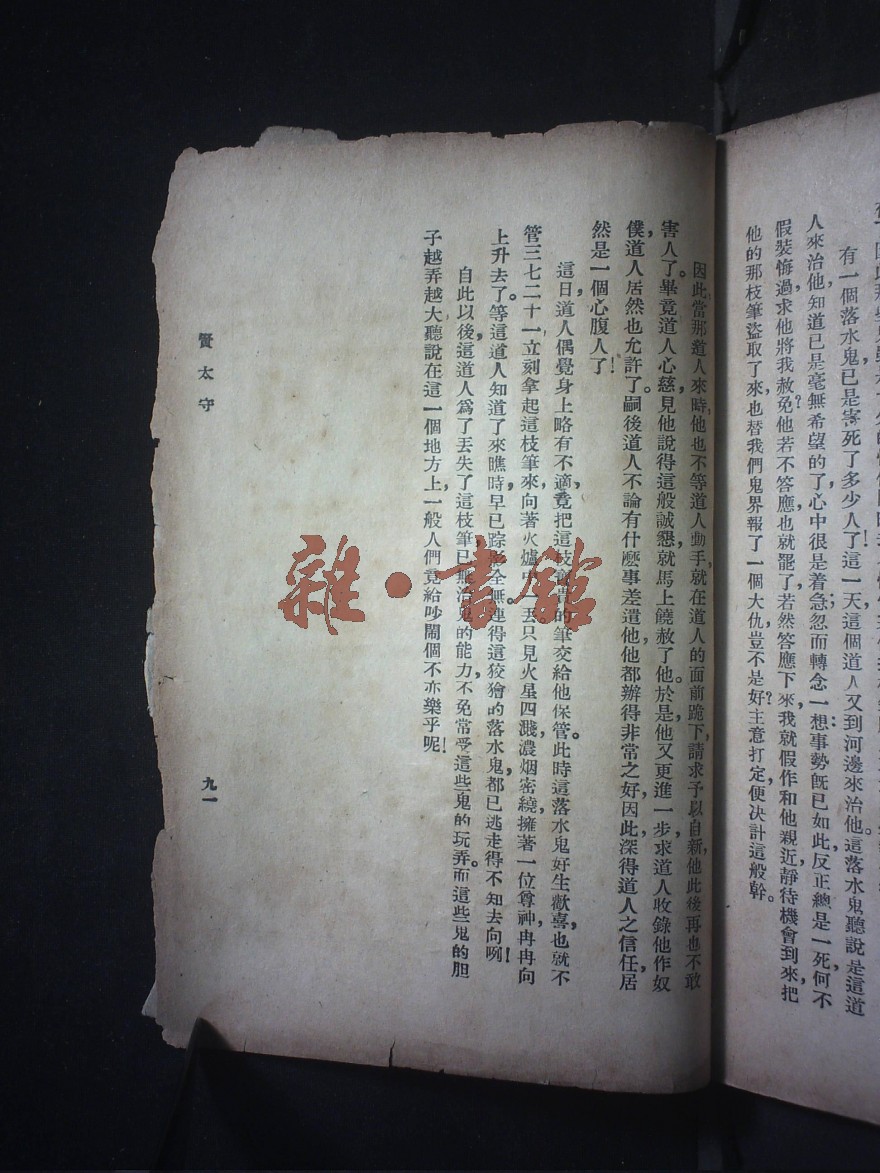 有一個落水鬼已是害死了多少人了這一天這個道人又到河邊來治他這落水鬼聽說是這道
人來治他,知道已是毫無希望的了!心中很是着急忽而轉念一想:事勢既已如此,反正總是一死,何不
假裝悔過求他將我赦免?他若不答應也就罷了;若然答應下來,我就假作和他親近靜待機會到來,把
他的那枝筆盜取了來,也替我們鬼界報了一個大仇,豈不是好?主意打定,便決計這般幹。
因此,當那道人來時,他也不等道人動手,就在道人的面前跪下,請求予以自新,他此後再也不敢
害人了。畢竟道人心慈,見他說得這般誠懇,就馬上饒赦了他。於是他又更進一步,求道人收錄他作奴
僕,道人居然也允許了。嗣後道人不論有什麽事差遣他,他都辦得非常之好,因此,深得道人之信任,居
然是一個心腹人了!
這日道人偶覺身上略有不適,竟把這枝 的筆交給他保管。此時這落水鬼好生歡喜,也就不
管三七二十一,立刻拿起這枝筆來,向著火爐中 丟。只見火星四濺,濃烟密繞,擁著一位尊神冉冉向
上升去了。等這道人知道了來瞧時,早已踪 全無,連得這狡獪的落水鬼,都已逃走得不知去向咧!
自此以後,這道人爲了丟失了這枝筆,已無治鬼的能力,不免常受這些鬼的玩弄。而這些鬼的胆
子越弄越大,聽說在這一個地方上,一般人們竟給吵鬧個不亦樂乎呢!
賢太守
九一
雜·書館